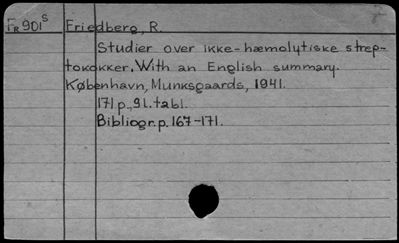 FR 901 S Friedberg, R.
Studier over ikke-hæmolytiske strep-
tokokker. With an English summary.
København, Munksgaards, 1941.
171 p., 9 l. tabl.
Bibliogr. p. 167-171.